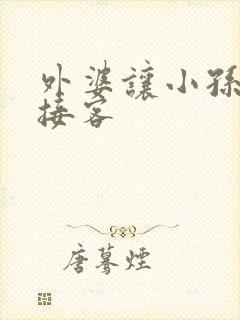 外婆讓小孫
接客
唐蓦煙